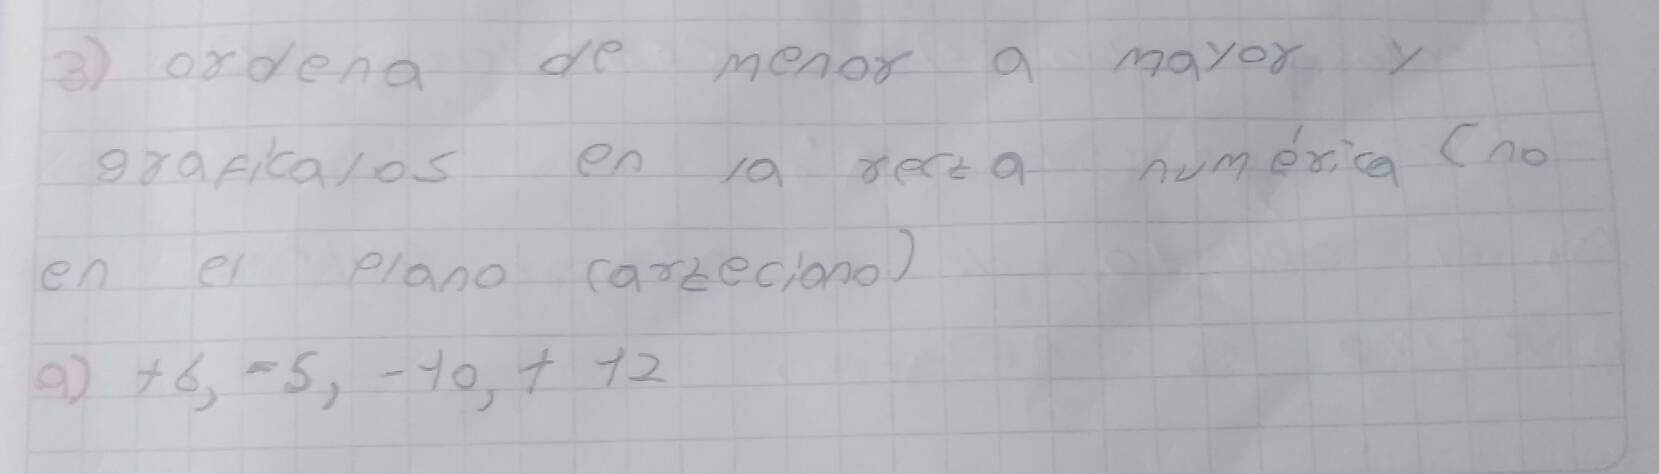 3) ordena de menor a mayor y
graficalos en la recta numérica (no
en el plano carteciano)
a) +6, -5, -10, + 12